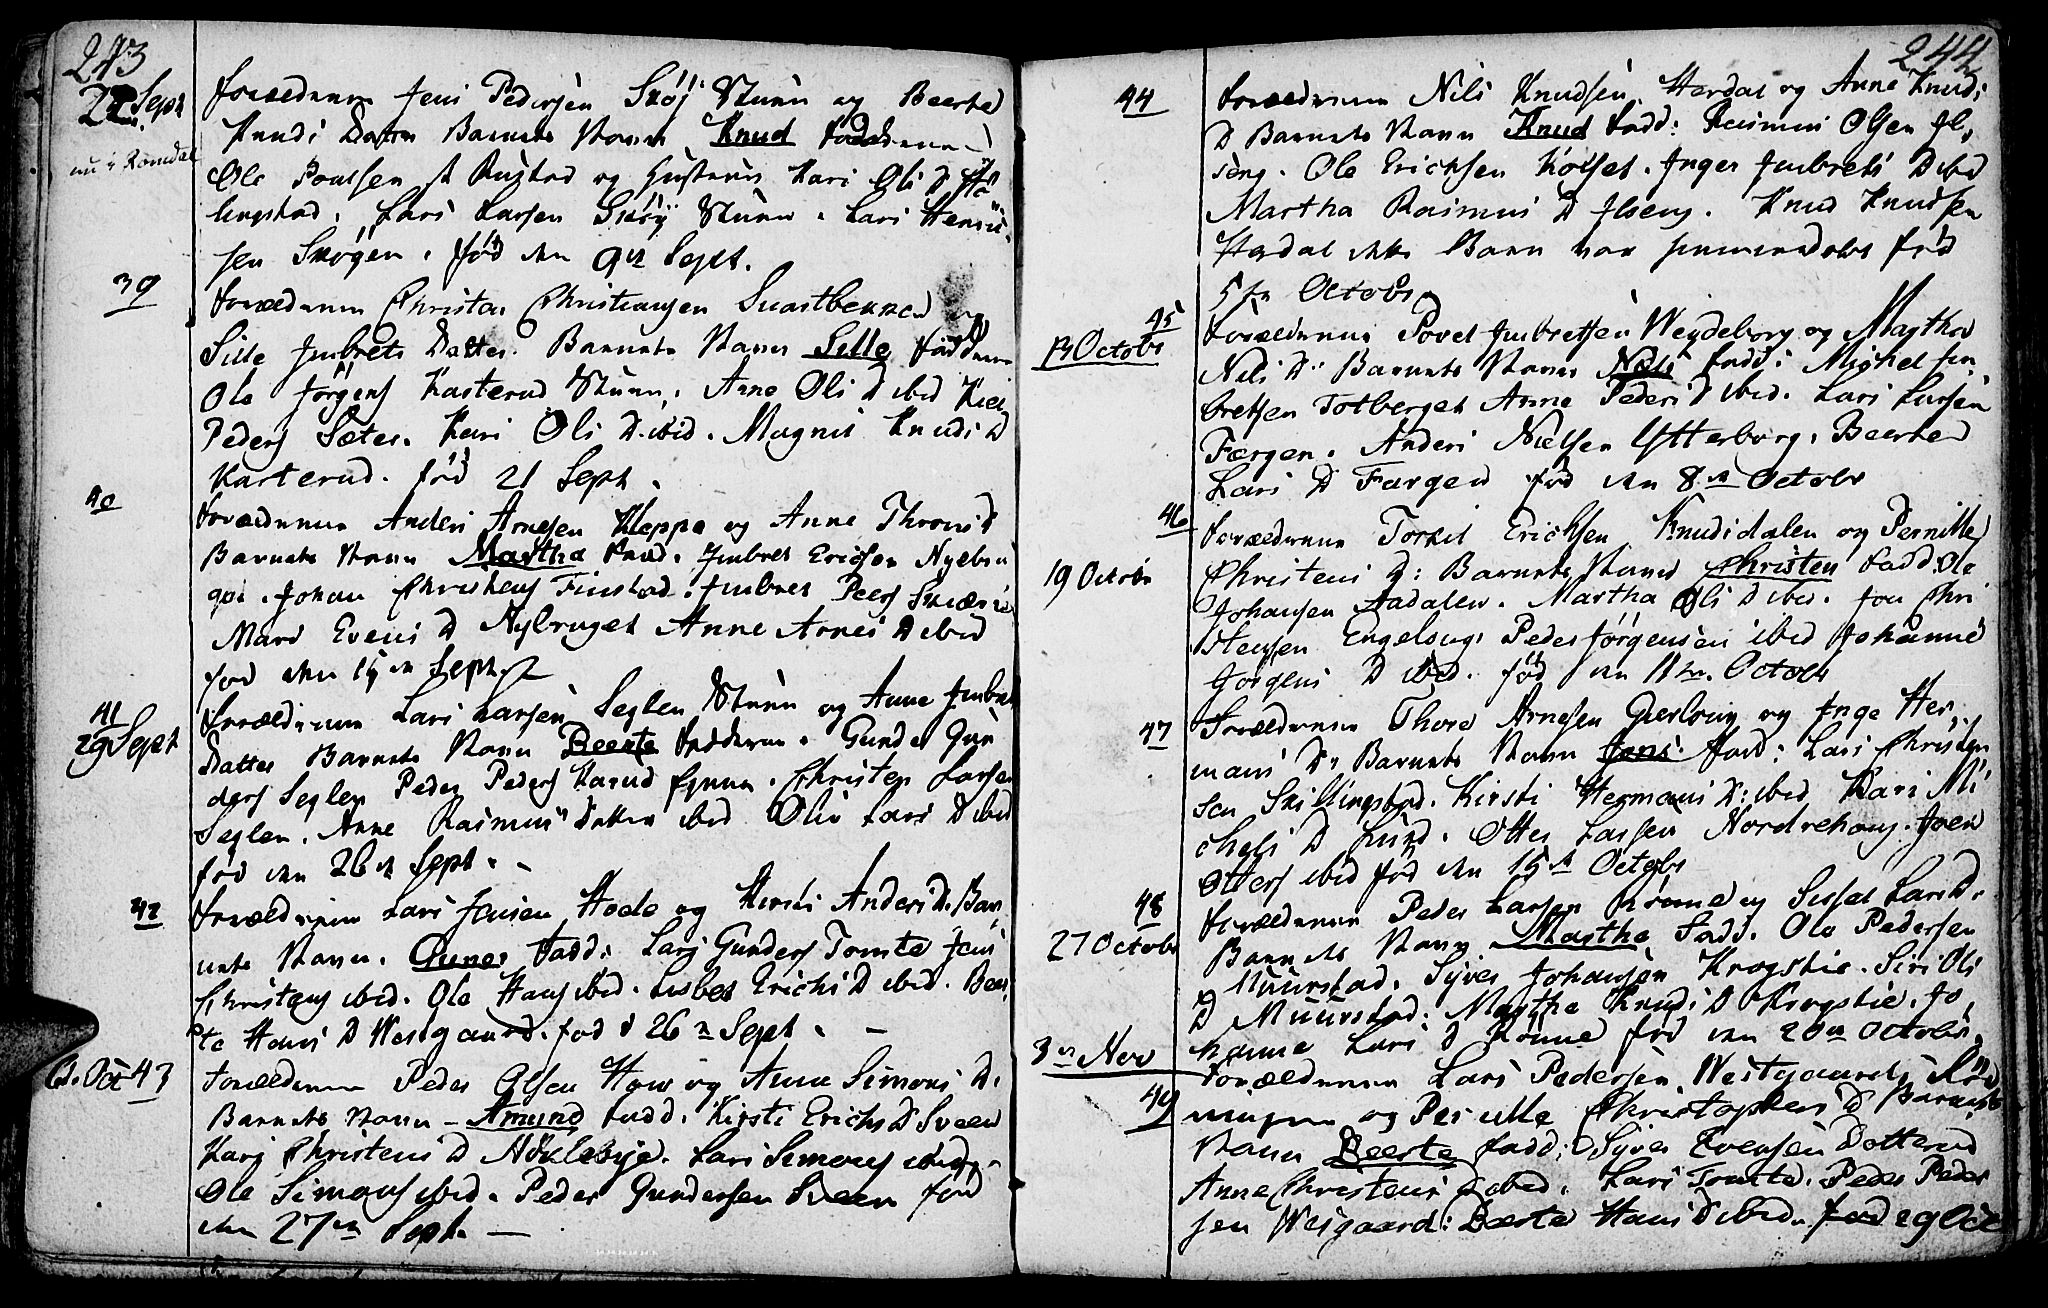 243
22 Sept
nu i Romdal
Forældrene Jens Pedersen Skøj Stuun og Beerte
Knudi Datt Barnets Navn Knud Faddrene
Ole Poulsen Rustad og Hustrue Kari Oli D
lingstad. Lars Larsen Skøÿ Stuen. Lari
sen Skøgen. fød den 9de Sept.
39
Forældrene Christen Christiansen Suartbecken og
Sille Jmbrets Datter. Barnets Navn Sille Faddrene
Ole Jörgens Kasterud Stuen. Anne Oli D ibid
Peders Sæter. Kari Oli D. ibid. Magnil Knudi D
Kasterud. fød 21 Sept.
40
Forældrene Anders Arnesen Kleppe og Anne Thron D
Barnets Navn Martha Fad. Jmbret Ericsen Nyebru
get. Johan Christens Finstad. Jmbret Peers
Mari Evens D Nybruget Anne Arnes D ibid
fød den 15de Sept
41
29 Sept
Forældrene Lars Larsen Seglen Stuen og Anne Jmbret
Datter Barnets Navn Beerte Faddrene. Gunder Gun
ders Seglen Peder Peders Harud Christen Larsen
Seglen. Anne Rasmus Datter ibid Olia Lars D ibid
fød den 26de Sept. -
42
Forældrene Lars Jensen Hoele og Kirsti Anders D. Bar,
nets Navn. Guner Fadd: Lars Gunders Tomte Jens
Christens ibid. Ole Hans ibid. Lisbet Erichs D ibid. Beer,
te Hans D Westgaard. fød d 26de Sept. -
6. Oct 43
Forældrene Peder Olsen How og Anne Simons D.
Barnets Navn - Amund Fadd. Kirsti Erichs D Sveen
Kari Christens D Nöklebye. Lars Simons ibid. -
Ole Simons ibid. Peder Gundersen Sveen fød
den 27de Sept. -
244
44
Forældrene Nils Knudsen Herdal og Anne Knudi
D Barnets Navn Knud Fadd: Rasmus Olsen Jl,
seng. Ole Erichsen Kolset. Inger Jmbrets D ibid
Martha Rasmus D Jlseng. Knud Knudsen
Herdal dette Barn var fød
5te Octobr.
45
13 Octobr
Forældrene Povel Jmbretsen Weydeborg og Martha
Nils D. Barnets Navn Nils Fadd: Michel Jm,
bretsen Totberget Anne Peders D ibid. Lars Larsen
Færgen. Anders Nielsen Ytterborg. Beerte
Lars D Færgen fød den 8de Octobr
46
19 Octobr
Forældrene Torkil Erichsen Knudsdalen og Pernille
Christens D: Barnets Navn Christen Fadd: Ole
Johansen Aadalen. Martha Oli D ibid. Jon Chri
stensen Engelsug: Peder Jörgensen ibid Johanne
Jörgens D ibid. fød den 11te. Octobr
47
Forældrene Thore Arnesen Gierlong og Inge Her,
mans D. Barnets Navn Jens Fadd: Lars Christen
sen Skillingstad. Kirsti Hermans D: ibid Kari Mi
chels D Lund. Otter Larsen Nordrehong. Joen
Otters ibid fød den 15de Octobr
48
27 Octobr
Forældrene Peder Larsen Rönne og Sissel Lars D.
Barnets Navn Marthe Fadd. Ole Pedersen
Muurstad. Syver Johansen Krogstie. Siri Oli
D Muurstad. Marthe Knuds D Krogstie. Jo,
hanne Lars D Rönne fød den 20de Octobr
3de Nov
49
Forældrene Lars Pedersen Westgaards Röd
ningen og Pernille Christophers D Barnets
Navn Beerte Fadd: Syver Evensen Dotterud
Anne Christens D ibid. Lars Tomte. Peder Peder
sen Wesgaard: Bærte Hans D ibid. fød 29 Oct